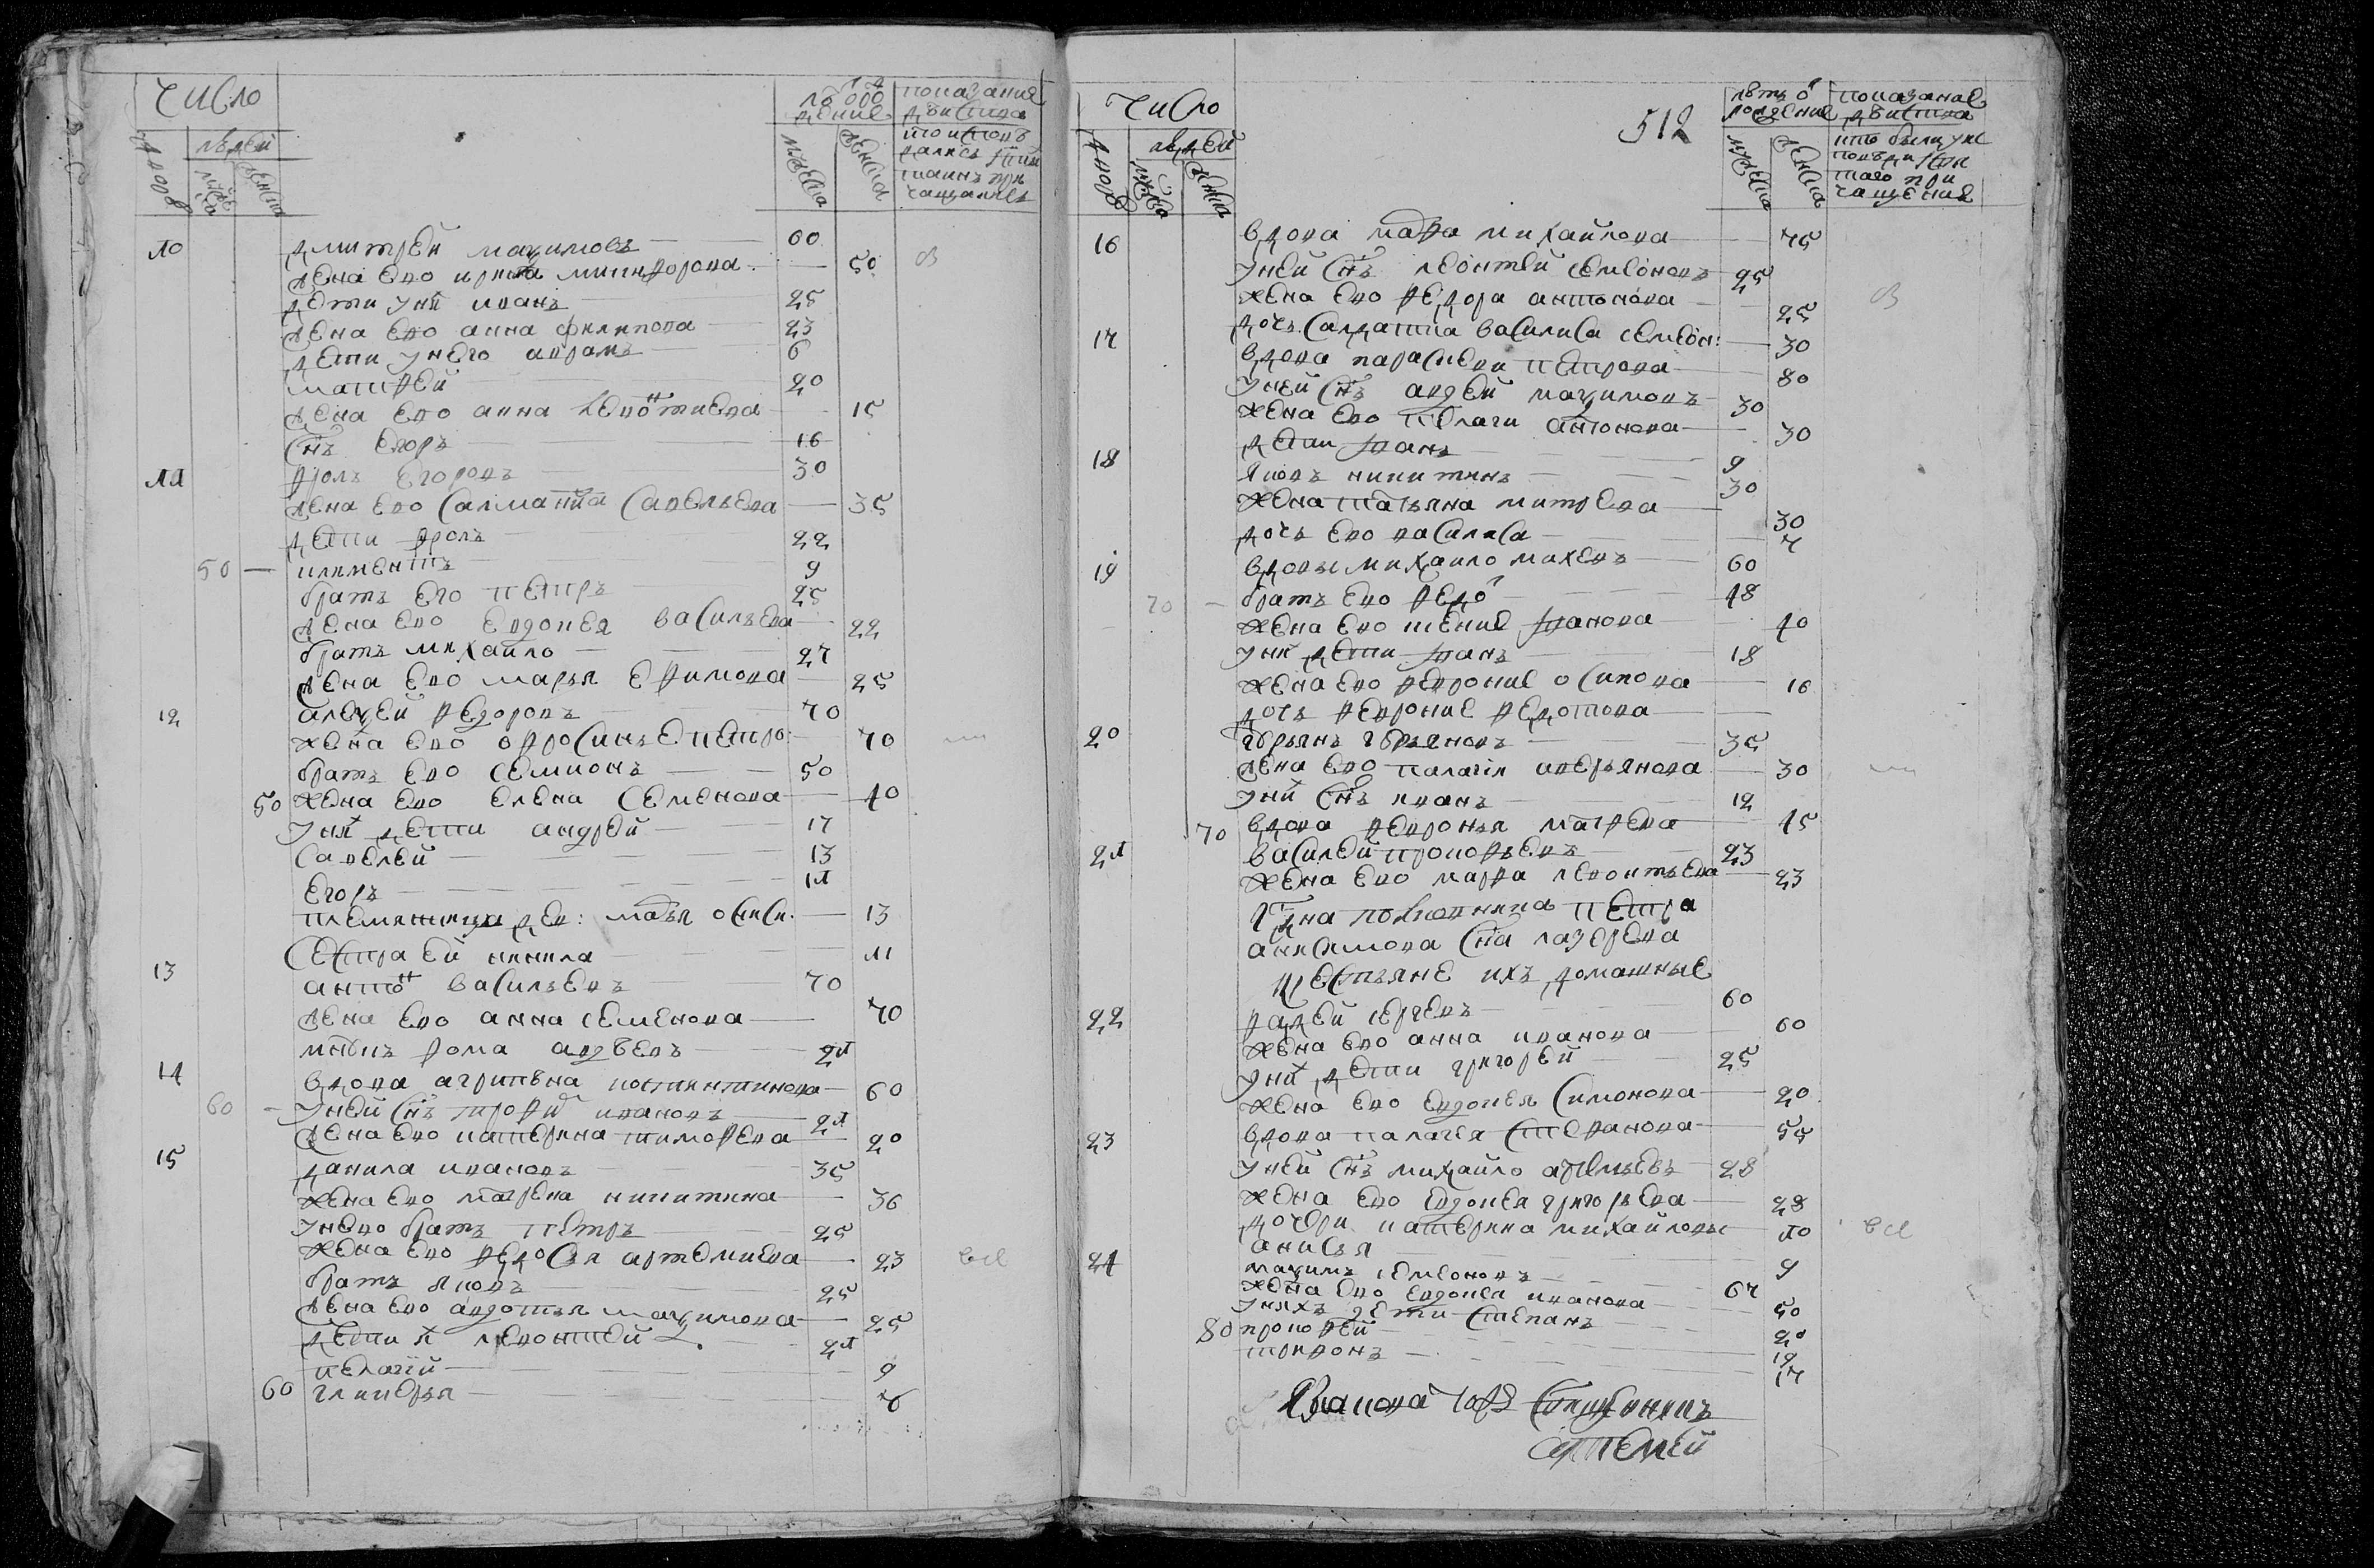 число
людей
мужеска
женска
дворовъ
показание
действа
мужеска
женска
10 дмитрей маѯимовъ 60
жена ево ирина никифорова 50
дети у них иванъ 25
жена ево анна филипова 23
дети у него аврамъ 6
матфей 20
жена ево анна леонтиева 15
снъ егоръ 16
11 фролъ егоровъ 30
жена ево саломанида савельева 35
дети фролъ 22
50 климентъ 9
братъ его петръ 25
жена ево евдокея васильева 22
братъ михайло 27
жена ево марья ефимова 25
12 алеѯей федоровъ 70
жена ево офросинье петро: 70
братъ ево семионъ 50
50 жена ево елена семенова 40
у них дети андрей 17
савелей 13
егоръ 11
племяница дев: марья 13
сестра ей ненила 11
13 антон васильевъ 70
жена ево анна семенова 70
внукъ фома андреевъ 21
14 вдова агрипена костентинова 60
60 у ней снъ трофим ивановъ 21
жена ево катерина тимофева 20
15 данила ивановъ 35
жена ево матрена никитина 36
у нево братъ петръ 25
жена ево федосья артемиева 23
братъ яковъ 25
жена ево авдотья маѯимова 25
дети их левонтей 21
пелагия 9
60 гликерья 6
512
число
людей
дворовъ
мужеска
женска
летъ о
рождение
показание
действа
мужеска
женска
16 вдова марфа михайлова 75
у ней снъ леонтей семионовъ 25
жена ево федора антонова 25
дочь салдатка василиса семион: 30
17 вдова парасковя петрова 80
у ней снъ авдей маѯимовъ 30
жена ево пелаги антонова 30
дети иванъ 9
18 яковъ никитинъ 30
жена татьяна митрева 30
дочь ево василиса 7
19 вдовы михайло михевъ 60
70 братъ ево федо 48
жена ево ксение иванова 40
у них дети иванъ 18
жена ево февроние осипова 16
дочь февроние федотова
20 абрамъ абрамовъ 35
жена ево палагия аверьянова 30
у них снъ иванъ 12
70 вдова февронья матфева 45
21 василей прокофьевъ 23
жена ево марфа левонтьева 23
гдна полковника петра
анисимова сна лазорева
крестьяне ихъ домашные
22 фадей сергевъ 60
жена ево анна иванова 60
у них дети григорей 25
жена ево евдокея симонова 20
23 вдова палагея степанова 55
у ней снъ михайло артемьевъ 28
жена ево евдокея григорьева 28
дочери катерина михайловы 10
анисья 9
24 маѯимъ семионовъ 67
жена ево евдокея иванова 50
у нихъ дети степанъ 20
80 прокофей 19
трифонъ 17